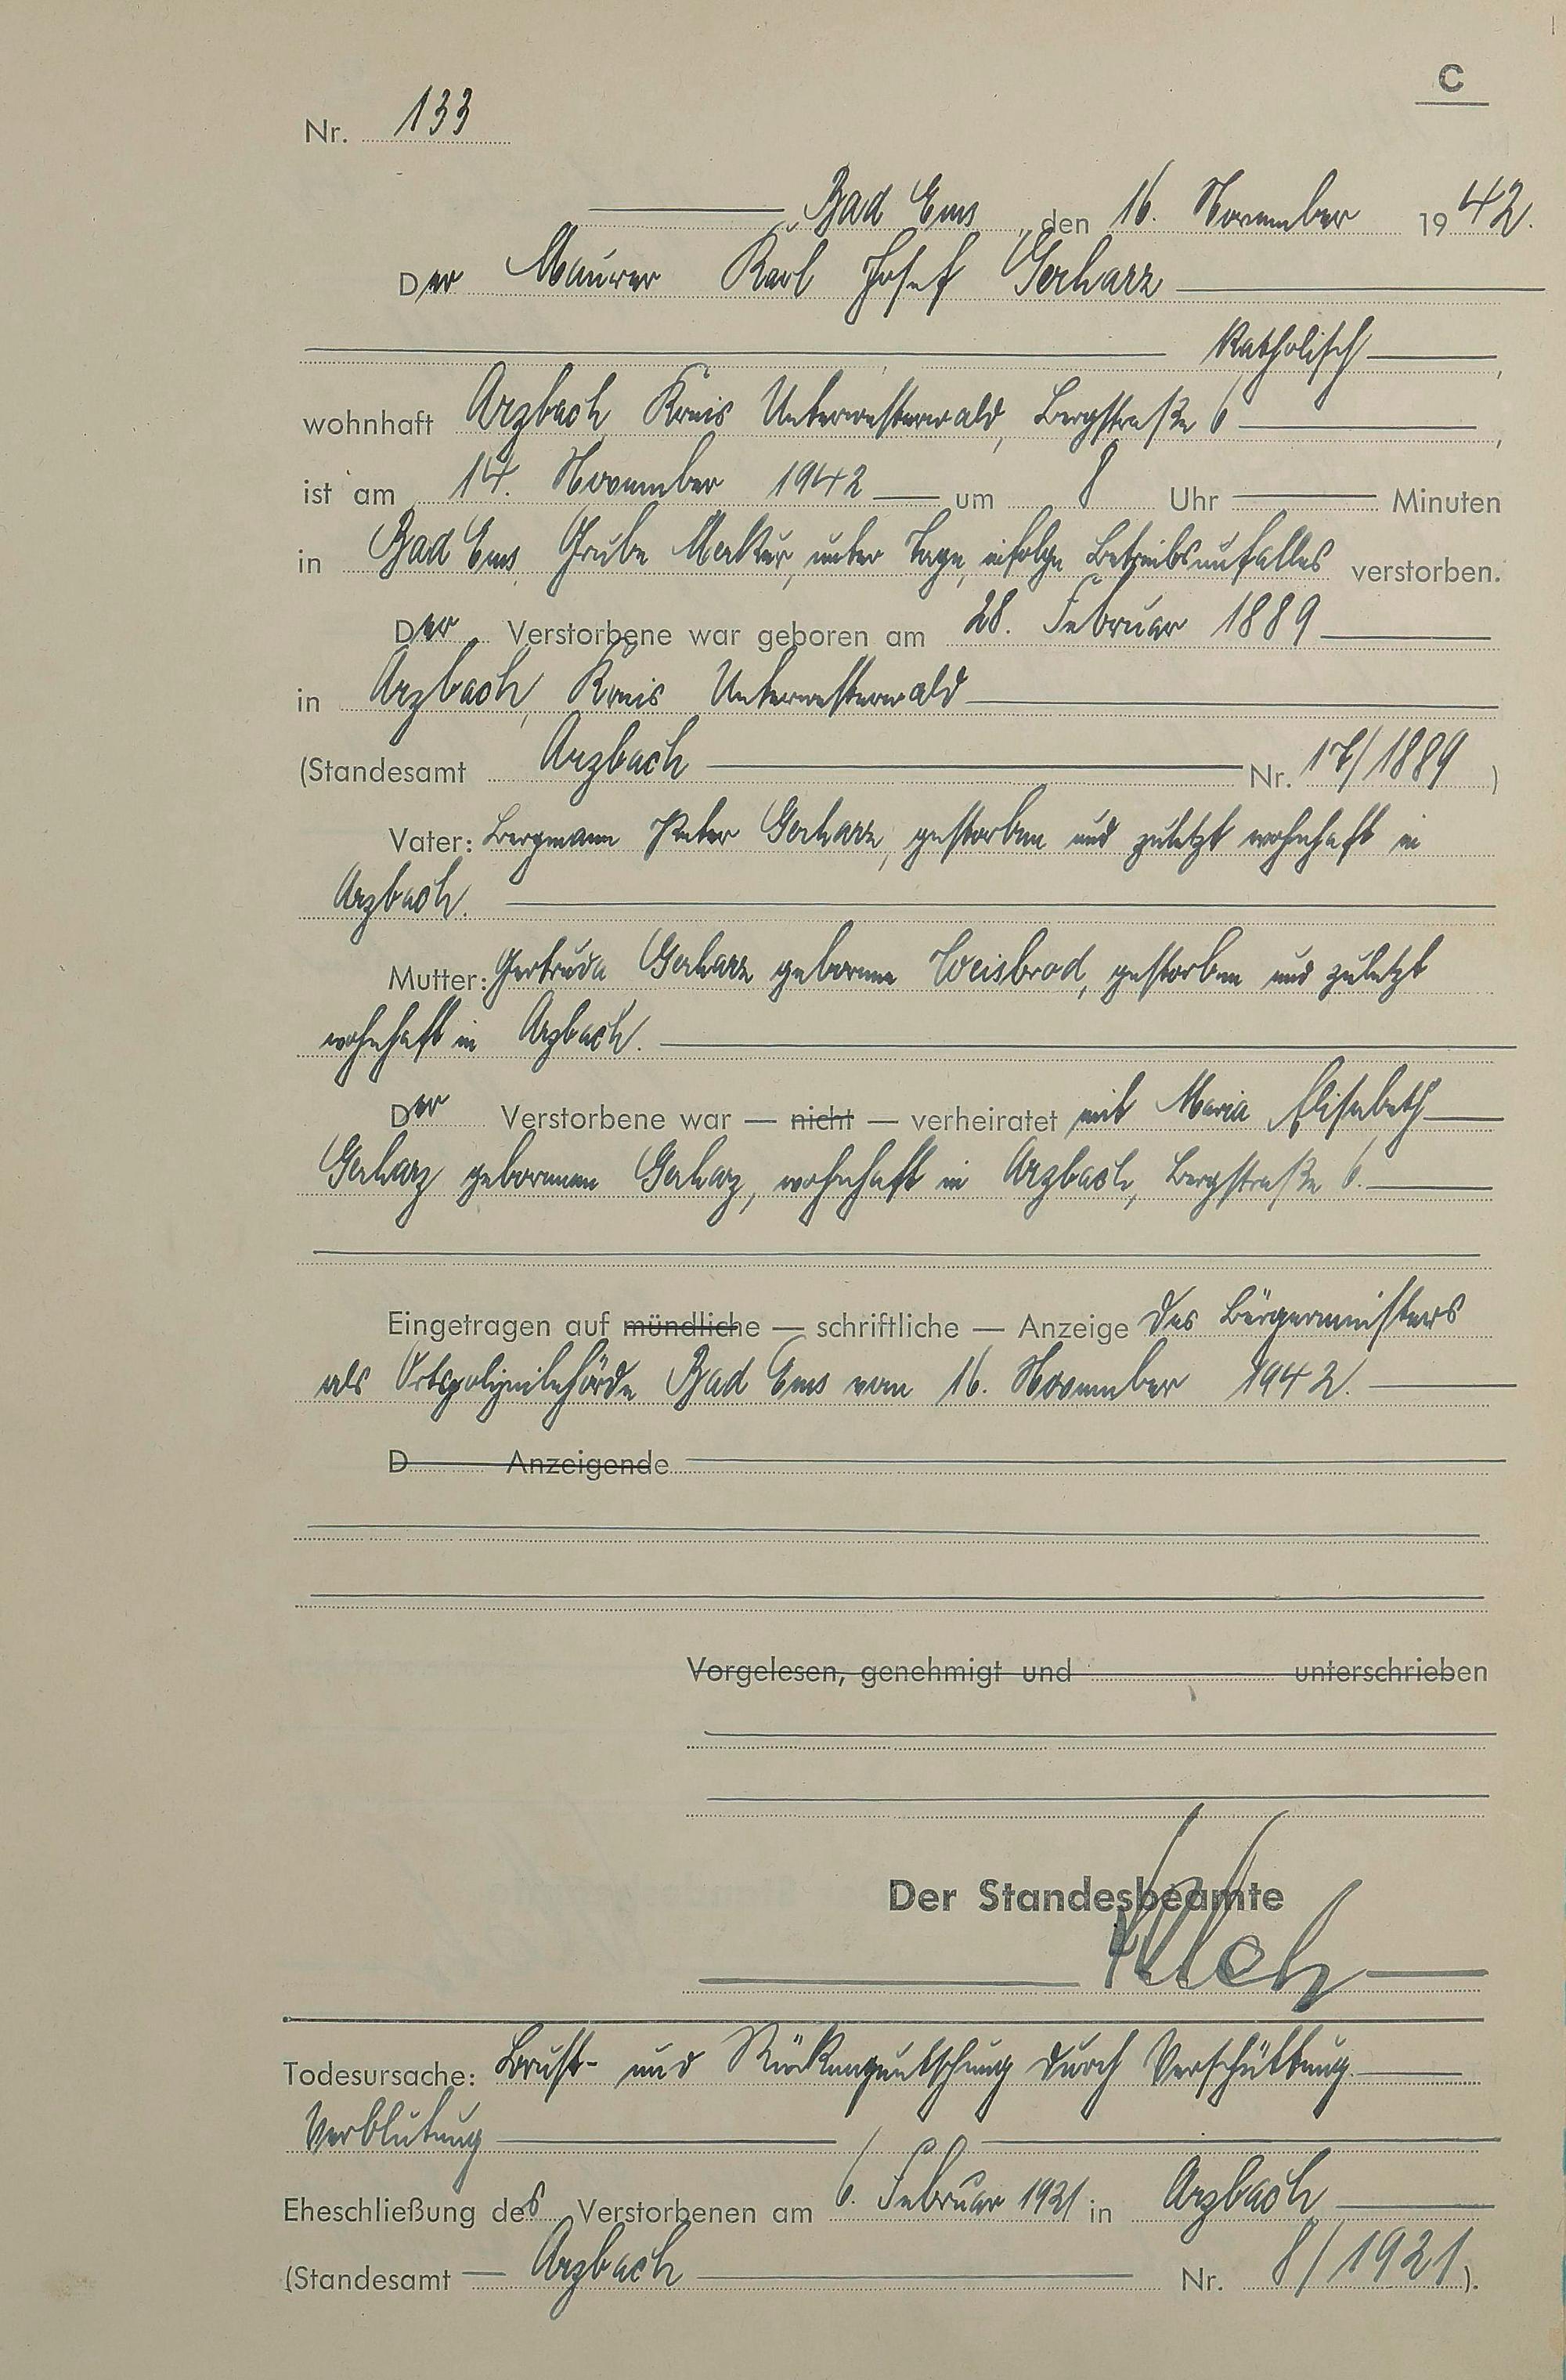 C
Nr. 133
Bad Ems, den 16. November 1942.
Der Maurer Karl Josef Gerharz
Katholisch,
wohnhaft Arzbach, Kreis Unterwesterwald, Bergstraße 6,
ist am 14. November 1942 um 8 Uhr Minuten
in Bad Ems, Grube Merkur, unter Tage, infolge Betriebsunfalles verstorben.
Der Verstorbene war geboren am 28. Februar 1889
in Arzbach, Kreis Unterwesterwald
(Standesamt Arzbach Nr. 17/1889)
Vater: Bergmann Peter Gerharz, gestorben und zuletzt wohnhaft in
Arzbach.
Mutter: Gertruda Gerharz geborene Weisbrod, gestorben und zuletzt
wohnhaft in Arzbach.
Der Verstorbene war — nicht — verheiratet mit Maria Elisabeth
Gerharz geborenen Gerharz, wohnhaft in Arzbach, Bergstraße 6.
Eingetragen auf mündliche — schriftliche — Anzeige des Bürgermeisters
als Ortspolizeibehörde Bad Ems vom 16. November 1942.
D Anzeigende
Vorgelesen, genehmigt und unterschrieben
Der Standesbeamte
Todesursache: Brust- und Rückenquetschung durch Verschüttung.
Verblutung
Eheschließung des Verstorbenen am 6. Februar 1921 in Arzbach
(Standesamt Arzbach Nr. 8/1921).